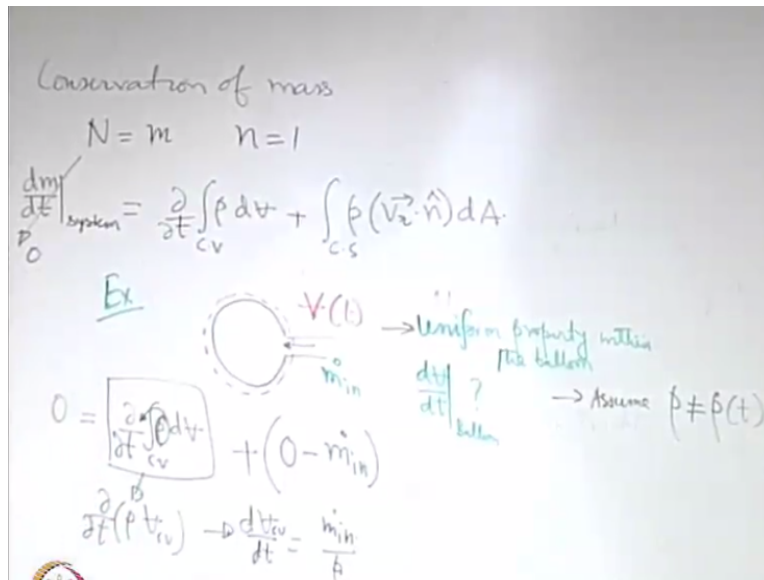 Conservation of mass
N = m n = 1
dm/dt|system = ∂/∂t ∫CV ρ d∀ + ∫C.S ρ (V⃗r · n̂) dA.
0
Ex
∀(t)
→ Uniform property within the balloon
ṁin
d∀/dt|balloon ?
→ Assume ρ ≠ ρ(t)
0 = ∂/∂t ∫CV ρ d∀ + (0 − ṁin)
∂/∂t (ρ ∀CV) → d∀CV/dt = ṁin/ρ